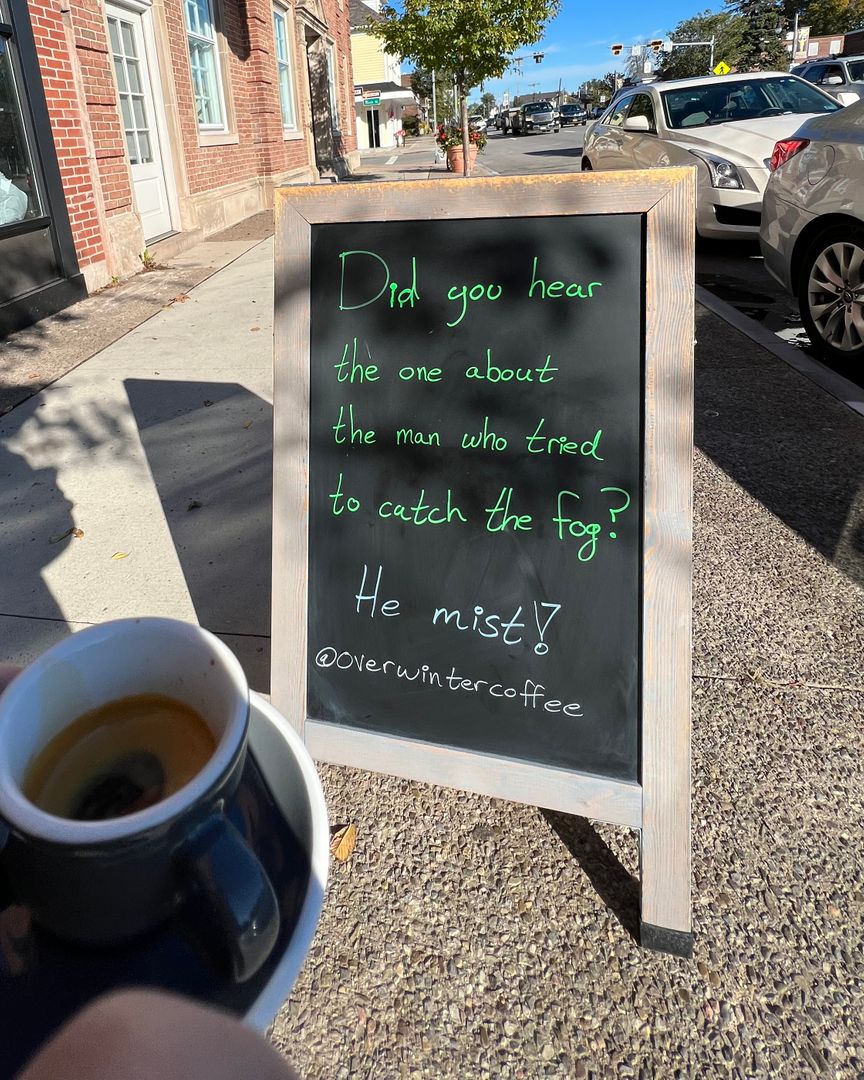 Did you hear
the one about
the man who tried
to catch the fog?
He mist!
@overwintercoffee